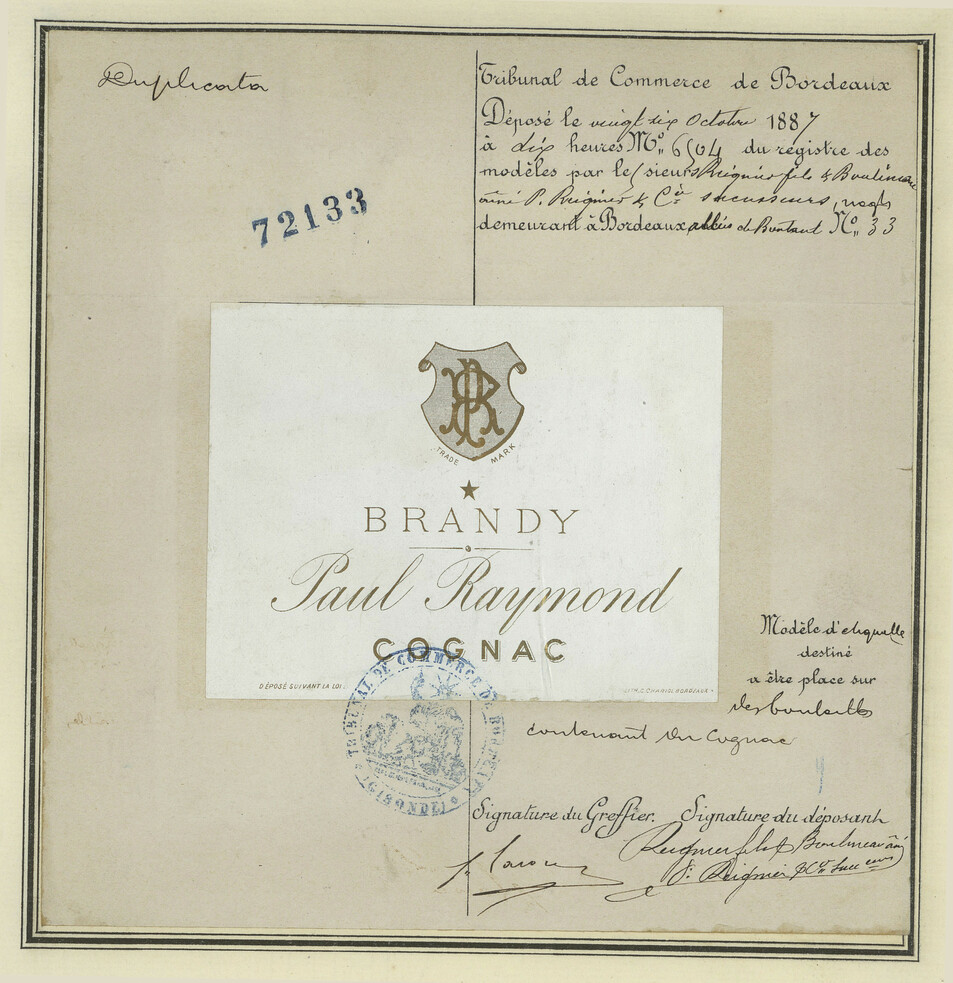 Duplicata
Tribunal de Commerce de Bordeaux
Déposé le vingt six Octobre 1887
à dix heures M. Nº 6504 du registre des
modèles par les sieurs Reignier fils & Boulineau
ainé P. Reignier & Cie successeurs, négts
demeurant à Bordeaux allées de Boutaut Nº 33
72133
PR
TRADE MARK
BRANDY
Paul Raymond
COGNAC
DÉPOSÉ SUIVANT LA LOI.
LITH. C. CHARIOL BORDEAUX
TRIBUNAL DE COMMERCE DE BORDEAUX
(GIRONDE)
Modèle d'etiquette
destiné
a être place sur
des bouteilles
contenant du Cognac
Signature du Greffier. Signature du déposant
Reignier fils & Boulineau ainé
P. Reignier & Cie Succeurs